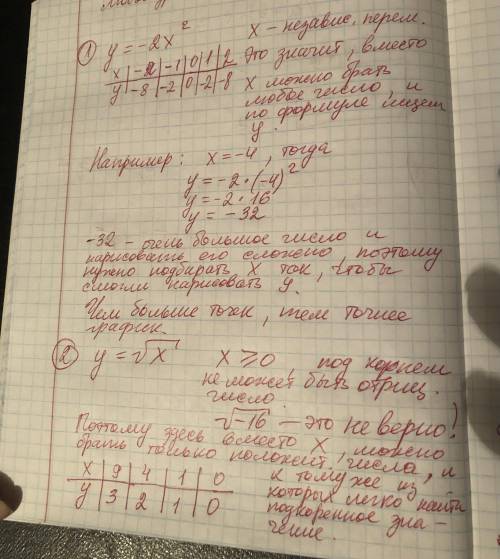 ① y = -2x²
x - независ. перем.
x | -2 | -1 | 0 | 1 | 2
y | -8 | -2 | 0 | -2 | -8
Это значит, вместо
x можно брать
любое число, и
по формуле ищем
y.
Например: x = -4, тогда
y = -2 · (-4)²
y = -2 · 16
y = -32
-32 - очень большое число и
нарисовать его сложно, поэтому
нужно подбирать x так, чтобы
смогли нарисовать y.
Чем больше точек, тем точнее
график.
② y = √x
x ≥ 0, под корнем
не может быть отриц.
число.
√-16 - это не верно!
Поэтому здесь вместо x, можно
брать только положит. числа, и
x | 9 | 4 | 1 | 0
y | 3 | 2 | 1 | 0
к тому же из
которых легко найти
подкоренное зна-
чение.